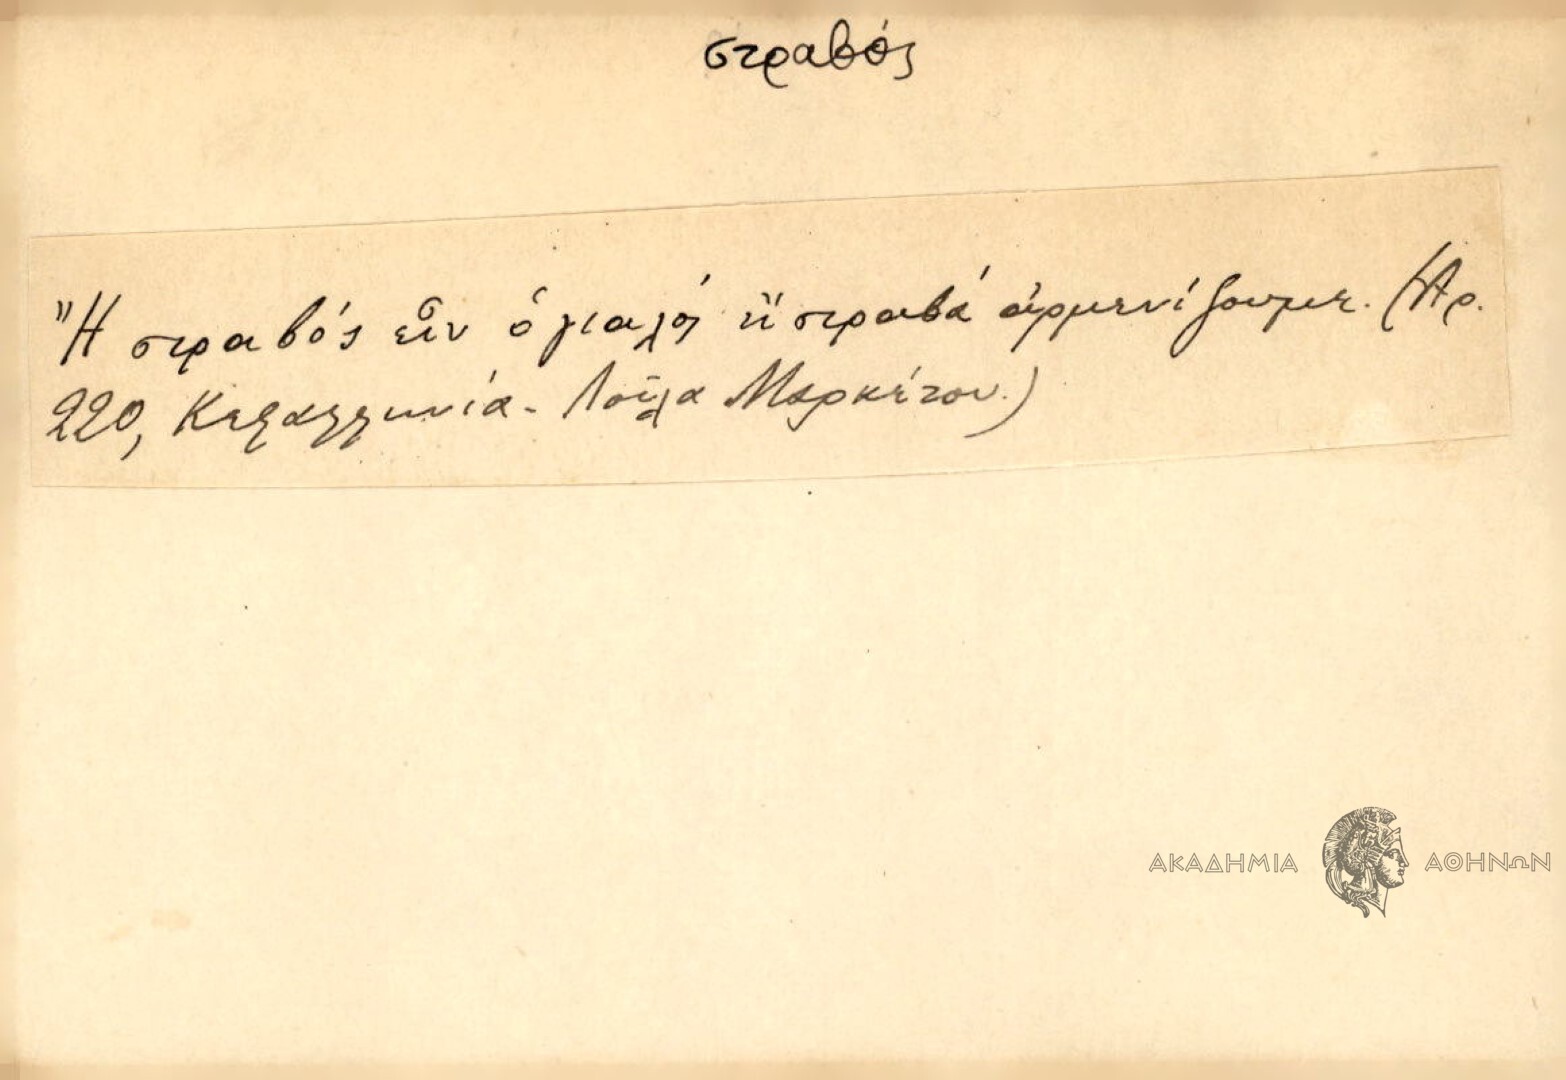 στραβός
Ἤ στραβός εἶν ὁ γιαλός ἤ στραβά ἀρμενίζουμε. (Ἀρ.
220, Κεφαλληνία - Λούλα Μαρκέτου.)
ΑΚΑΔΗΜΙΑ ΑΘΗΝΩΝ